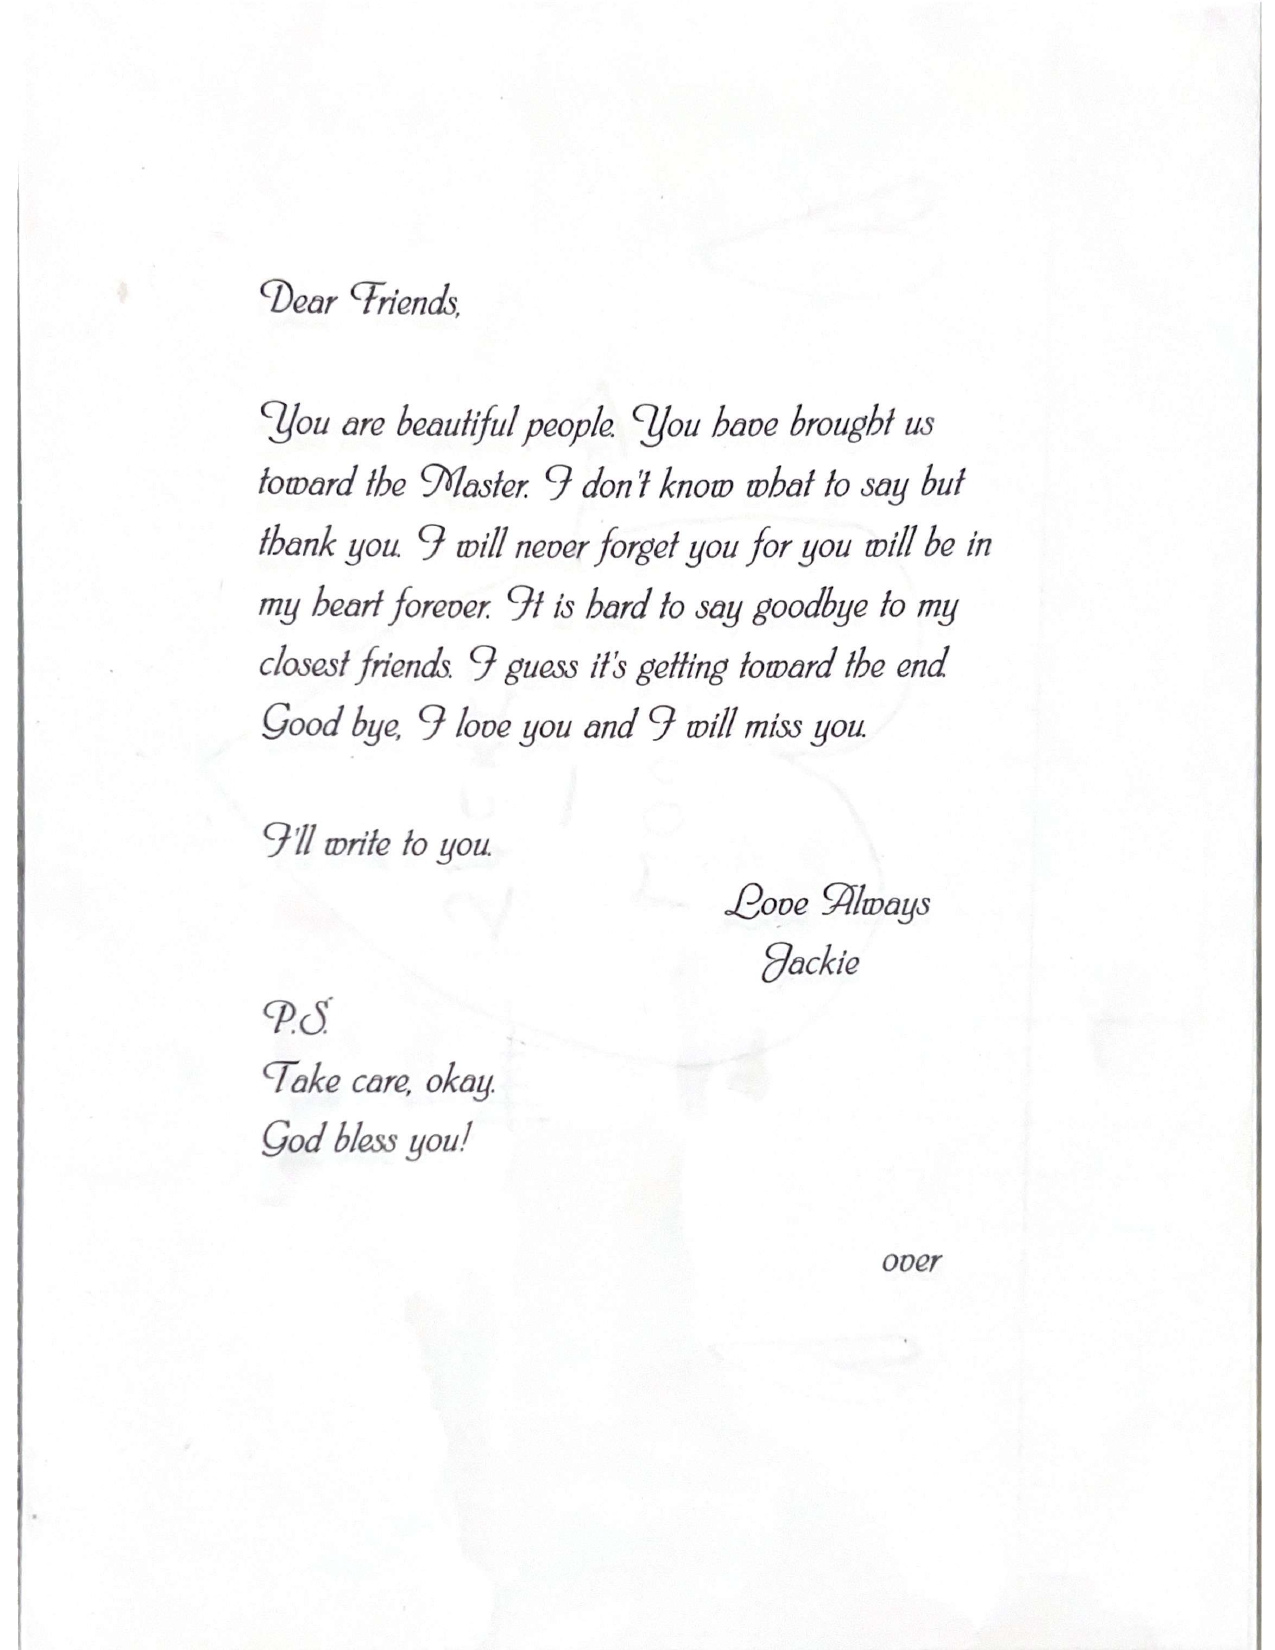 Dear Friends,
You are beautiful people. You have brought us
toward the Master. I don't know what to say but
thank you. I will never forget you for you will be in
my heart forever. It is hard to say goodbye to my
closest friends. I guess it's getting toward the end.
Good bye, I love you and I will miss you.
I'll write to you.
Love Always
Jackie
P.S.
Take care, okay.
God bless you!
over